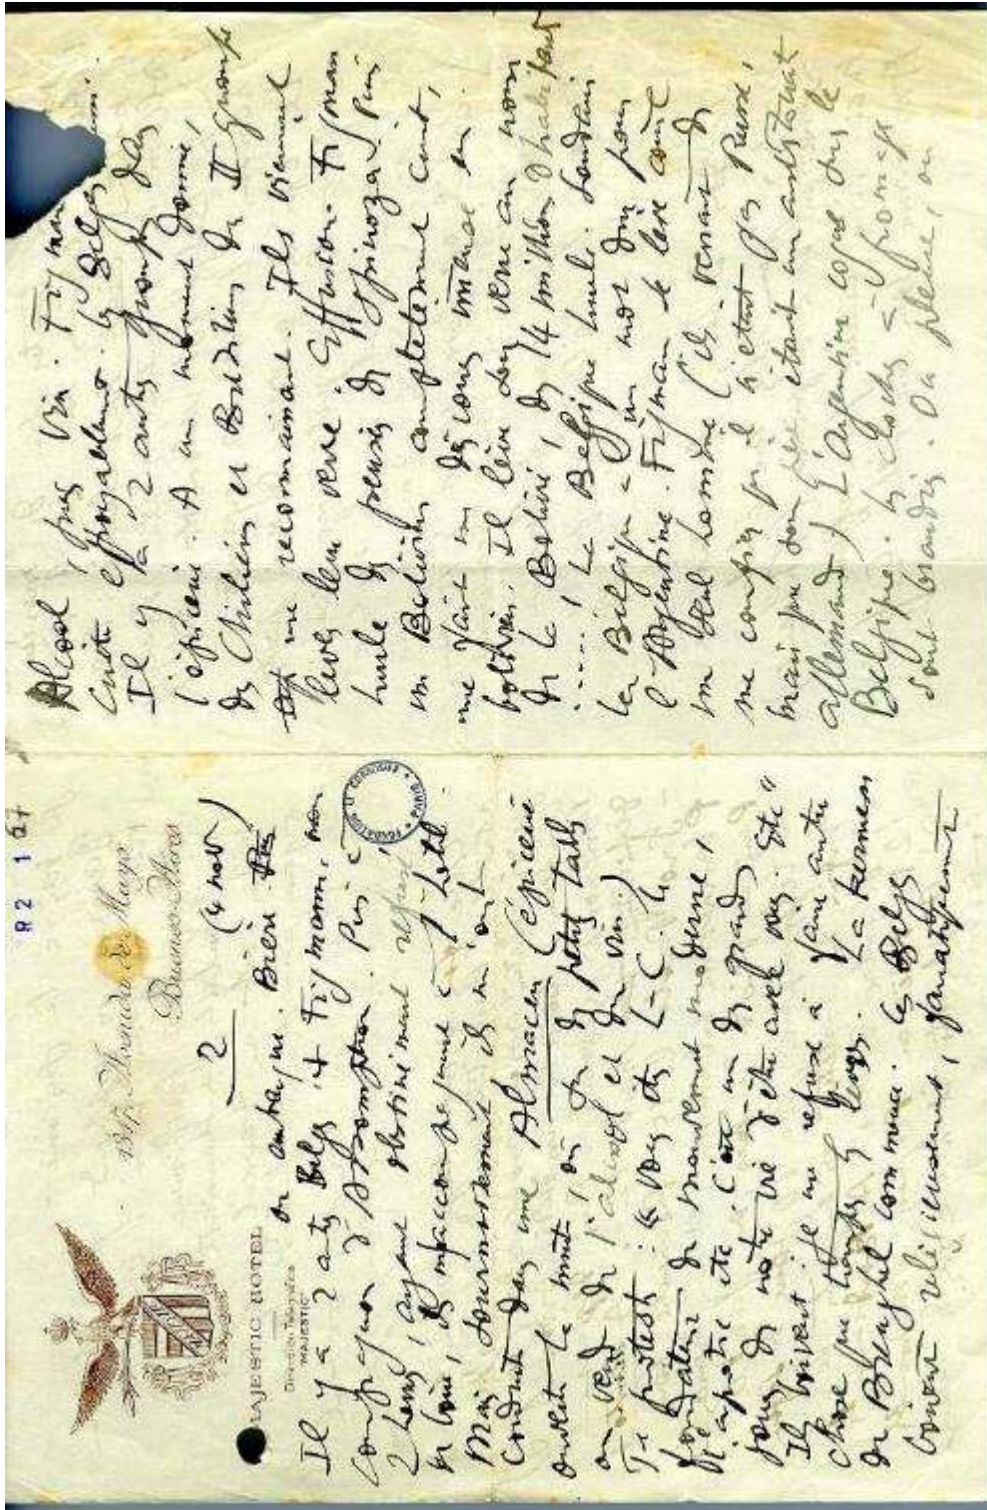 R2 1 67
1317 Avenida de Mayo
Buenos Aires
MAJESTIC HOTEL
Dirección Telegráfica
"MAJESTIC"
2 (4 nov)
on embarque. Bière
Il y a 2 autres Belges + Fijmann, mon
compagnon d'Assomption. Puis à
2 heures, ayant obstinément refusé
de boire, ils m'accompagnent à l'hôtel.
Mais sournoisement ils m'ont
conduit dans une Almacen (épicerie
ouverte la nuit, où on a des petites tables
on vend de l'alcool et du vin.)
Je proteste : "Vous êtes L-C. le
fondateur du mouvement moderne,
l'apôtre etc. C'est un des grands
jours de notre vie d'être avec vous. etc"
Ils boivent : je me refuse à faire autre
chose que tremper les lèvres. La kermesse
de Breughel commence. les Belges
boivent religieusement, fanatiquement
Alcool, puis vin. Fijman
cuite épouvantable. les Belges aussi.
Il y a 2 autres groupes dans
l'épicerie. A un moment donné,
des Chiliens et Boliviens du II groupe
me reconnaissent. Ils viennent
lever leur verre. Effusion. Fijman
hurle des pensées de Spinoza. Puis
un Bolivien complètement cuit,
me fait un discours immense en
bolivien. Il lève son verre au nom
de la Bolivie, des 14 millions d'habitants
......, La Belgique hurle. Soudain
la Belgique a un mot dur pour
l'Argentine. Fijman se lève comme
un seul homme (il venait de
me confier qu'il n'était pas Russe,
mais que son père était un aristocrate
allemand) L'Argentine cogne sur la
Belgique. les cloches à fromage
sont brandies. On pleure, on